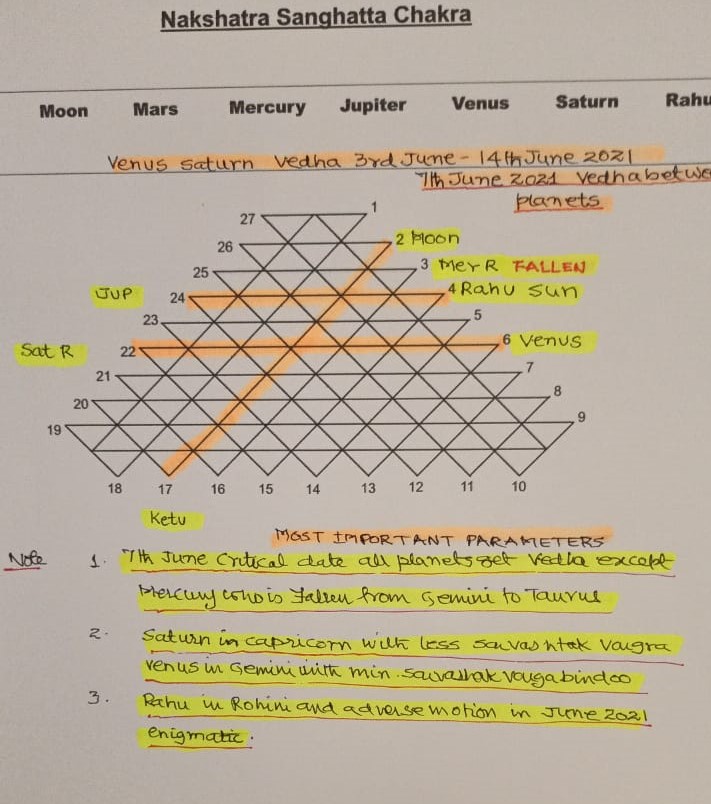 Nakshatra Sanghatta Chakra
Moon Mars Mercury Jupiter Venus Saturn Rahu
Venus saturn vedha 3rd June - 14th June 2021
7th June 2021 vedha betwe
planets
27 1
26 2 Moon
25 3 Mer R FALLEN
JUP 24 4 Rahu Sun
23 5
Sat R 22 6 Venus
21 7
20 8
19 9
18 17 16 15 14 13 12 11 10
Ketu
MOST IMPORTANT PARAMETERS
Note 1. 7th June Critical date all planets get Vedha except
Mercury who is fallen from Gemini to Taurus
2. Saturn in capricorn with less
venus in Gemini with min.
3. Rahu in Rohini and adverse motion in June 2021
enigmatic.